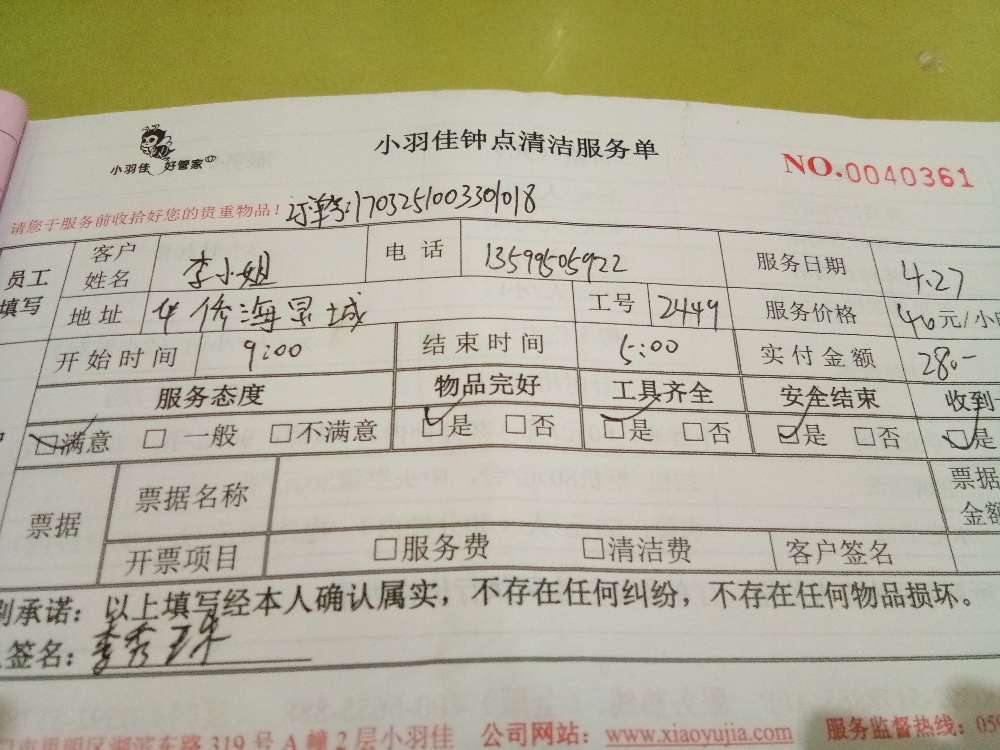 小羽佳 好管家
小羽佳钟点清洁服务单
NO.0040361
请您于服务前收拾好您的贵重物品！
订单号:1703251003301018
员工填写 客户姓名 李小姐 电话 13599505922 服务日期 4.27
地址 华侨海景城 工号 2449 服务价格 40元/小
开始时间 9:00 结束时间 5:00 实付金额 280-
服务态度 物品完好 工具齐全 安全结束 收到
□满意 □一般 □不满意 □是 □否 □是 □否 □是 □否 □是
票据 票据名称 票据金额
开票项目 □服务费 □清洁费 客户签名
承诺：以上填写经本人确认属实，不存在任何纠纷，不存在任何物品损坏。
签名：李秀珠
市思明区湖滨东路319号A幢2层小羽佳 公司网站：www.xiaoyujia.com 服务监督热线：059